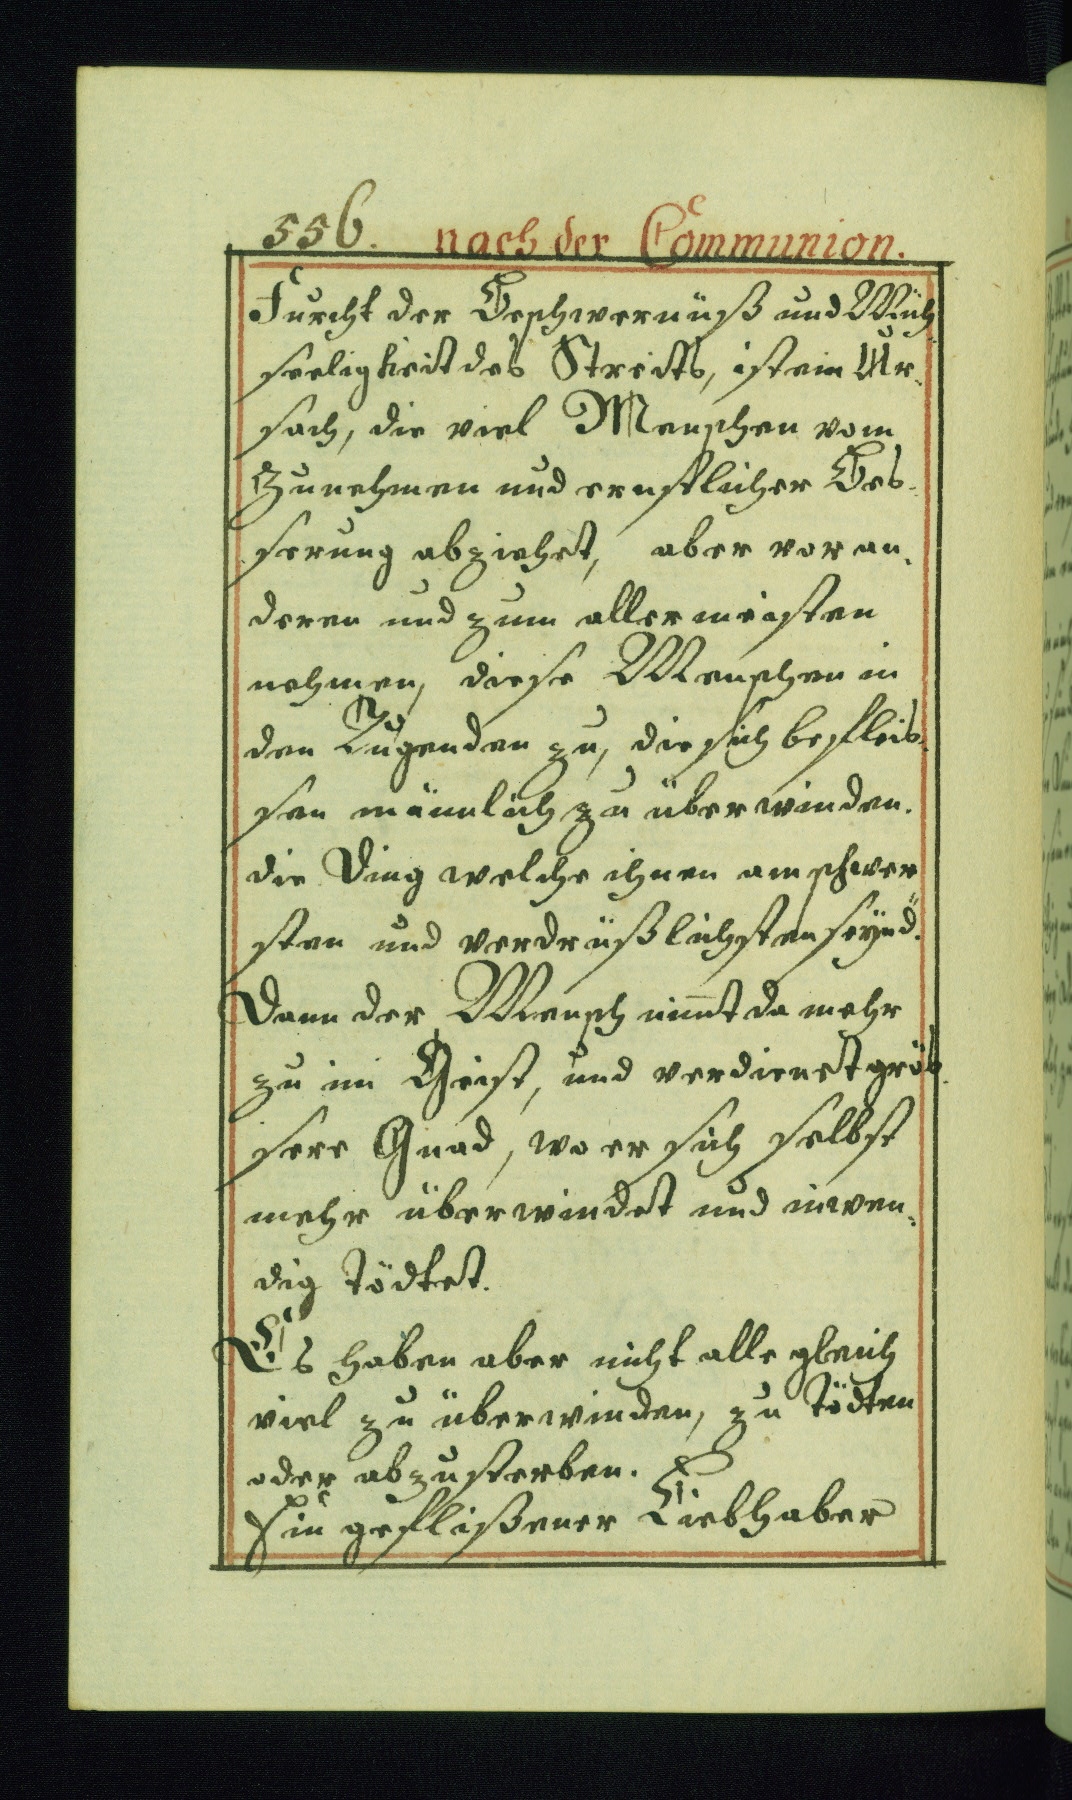 556. nach der Communion.
Furcht der Beschwernüß und Müh¬
seeligkeit des Streits, ist ein Ur¬
sach, die viel Menschen vom
Zunehmen und ernstlicher Bes¬
serung abziehet, aber vor an¬
deren und zum allermeisten
nehmen, diese Menschen in
den Tugenden zu, die sich befleis¬
sen männlich zu überwinden.
die Ding welche ihnen am schwer
sten und verdrüßlichsten seynd.
Dann der Mensch nim̅t da mehr
zu im Geist, und verdienet grös¬
sere Gnad, wo er sich selbst
mehr überwindet und inwen¬
dig tödtet.
Es haben aber nicht alle gleich
viel zu überwinden, zu tödten
oder abzusterben.
Ein geflißener Liebhaber